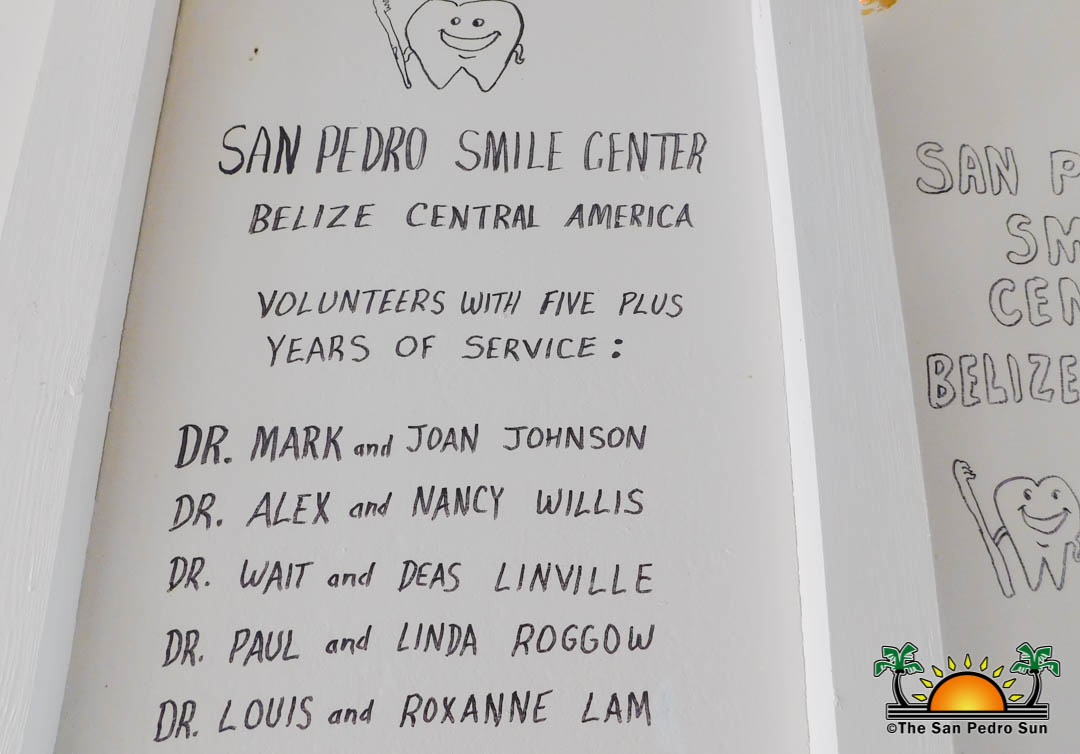 SAN PEDRO SMILE CENTER
BELIZE CENTRAL AMERICA
VOLUNTEERS WITH FIVE PLUS
YEARS OF SERVICE:
DR. MARK and JOAN JOHNSON
DR. ALEX and NANCY WILLIS
DR. WAIT and DEAS LINVILLE
DR. PAUL and LINDA ROGGOW
DR. LOUIS and ROXANNE LAM
SAN P
SM
CEN
BELIZE
©The San Pedro Sun